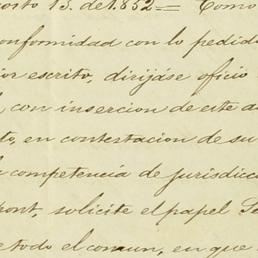 osto 13. de 1.852= Como
conformidad con lo pedido
or escrito, dirijáse oficio
, con insercion de este a
to, en contestacion de su
competencia de jurisdicc
pont, solicite el papel Se
e todo el comun, en que